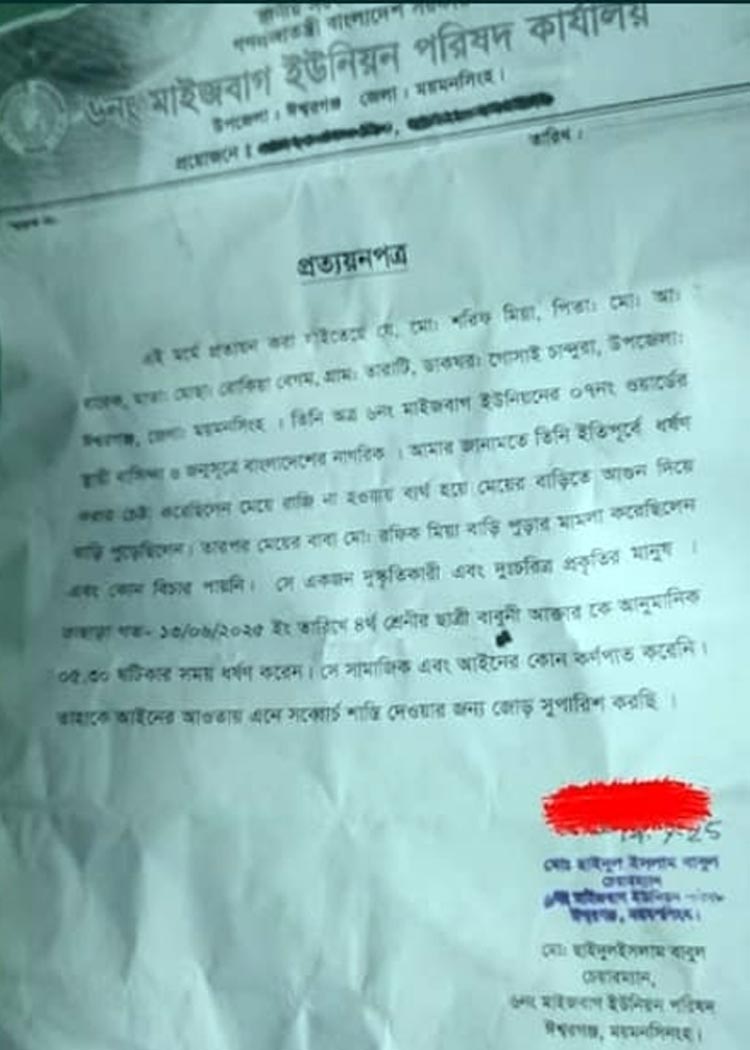 গণপ্রজাতন্ত্রী বাংলাদেশ সরকার
৬নং মাইজবাগ ইউনিয়ন পরিষদ কার্যালয়
উপজেলা : ঈশ্বরগঞ্জ জেলা : ময়মনসিংহ।
প্রয়োজনে :
তারিখ :
প্রত্যয়নপত্র
এই মর্মে প্রত্যয়ন করা যাইতেছে যে, মো: শরিফ মিয়া, পিতা: মো: আ:
মাতা: মোছা: রোকিয়া বেগম, গ্রাম: তারাটি, ডাকঘর: গোসাই চান্দুরা, উপজেলা:
ঈশ্বরগঞ্জ, জেলা: ময়মনসিংহ । তিনি অত্র ৬নং মাইজবাগ ইউনিয়নের ০৭নং ওয়ার্ডের
স্থায়ী বাসিন্দা ও জন্মসূত্রে বাংলাদেশের নাগরিক । আমার জানামতে তিনি ইতিপূর্বে ধর্ষণ
করার চেষ্টা করেছিলেন মেয়ে রাজি না হওয়ায় ব্যর্থ হয়ে মেয়ের বাড়িতে আগুন দিয়ে
বাড়ি পুড়েছিলেন। তারপর মেয়ের বাবা মো: রফিক মিয়া বাড়ি পুড়ার মামলা করেছিলেন
এবং কোন বিচার পায়নি। সে একজন দুস্কৃতিকারী এবং দুঃচরিত্র প্রকৃতির মানুষ ।
তাছাড়া গত- ১৩/০৬/২০২৫ ইং তারিখে ৪র্থ শ্রেনীর ছাত্রী বাবুনী আক্তার কে আনুমানিক
০৫.৩০ ঘটিকার সময় ধর্ষণ করেন। সে সামাজিক এবং আইনের কোন কর্ণপাত করেনি।
তাহাকে আইনের আওতায় এনে সর্ব্বোচ্চ শাস্তি দেওয়ার জন্য জোড় সুপারিশ করছি ।
মোঃ ছাইদুল ইসলাম বাবুল
চেয়ারম্যান
৬নং মাইজবাগ ইউনিয়ন পরিষদ
ঈশ্বরগঞ্জ, ময়মনসিংহ।
মো: ছাইদুলইসলাম বাবুল
চেয়ারম্যান,
৬নং মাইজবাগ ইউনিয়ন পরিষদ
ঈশ্বরগঞ্জ, ময়মনসিংহ।